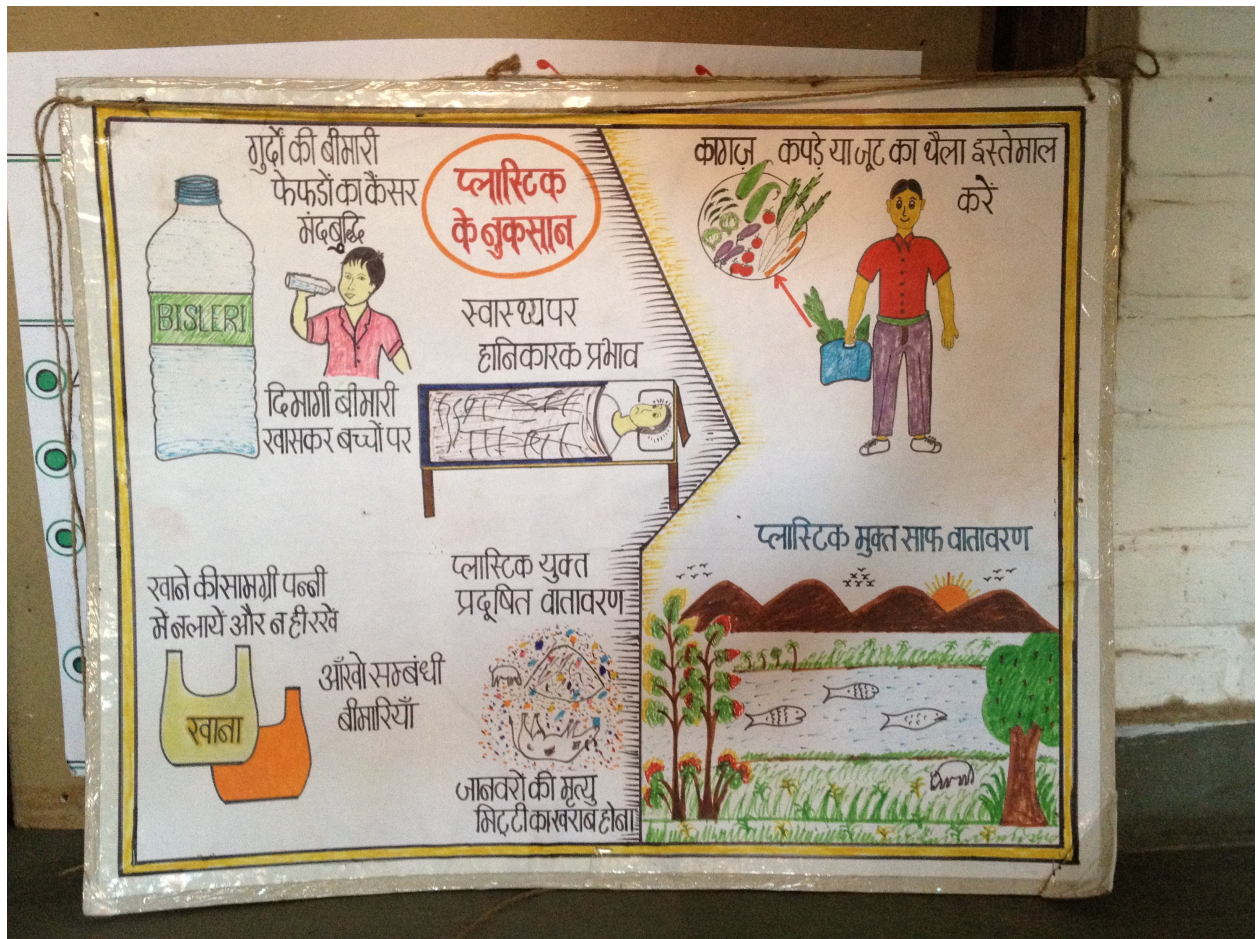 गुर्दों की बीमारी
फेफडों का कैंसर
मंदबुद्धि
प्लास्टिक
के नुकसान
BISLERI
स्वास्थ्य पर
हानिकारक प्रभाव
दिमागी बीमारी
खासकर बच्चों पर
खाने की सामग्री पन्नी
मे न लायें और न ही रखें
खाना
आँखो सम्बंधी
बीमारियाँ
प्लास्टिक युक्त
प्रदूषित वातावरण
जानवरों की मृत्यु
मिट्टी का खराब होना
कागज़ कपड़े या जूट का थैला इस्तेमाल
करें
प्लास्टिक मुक्त साफ वातावरण